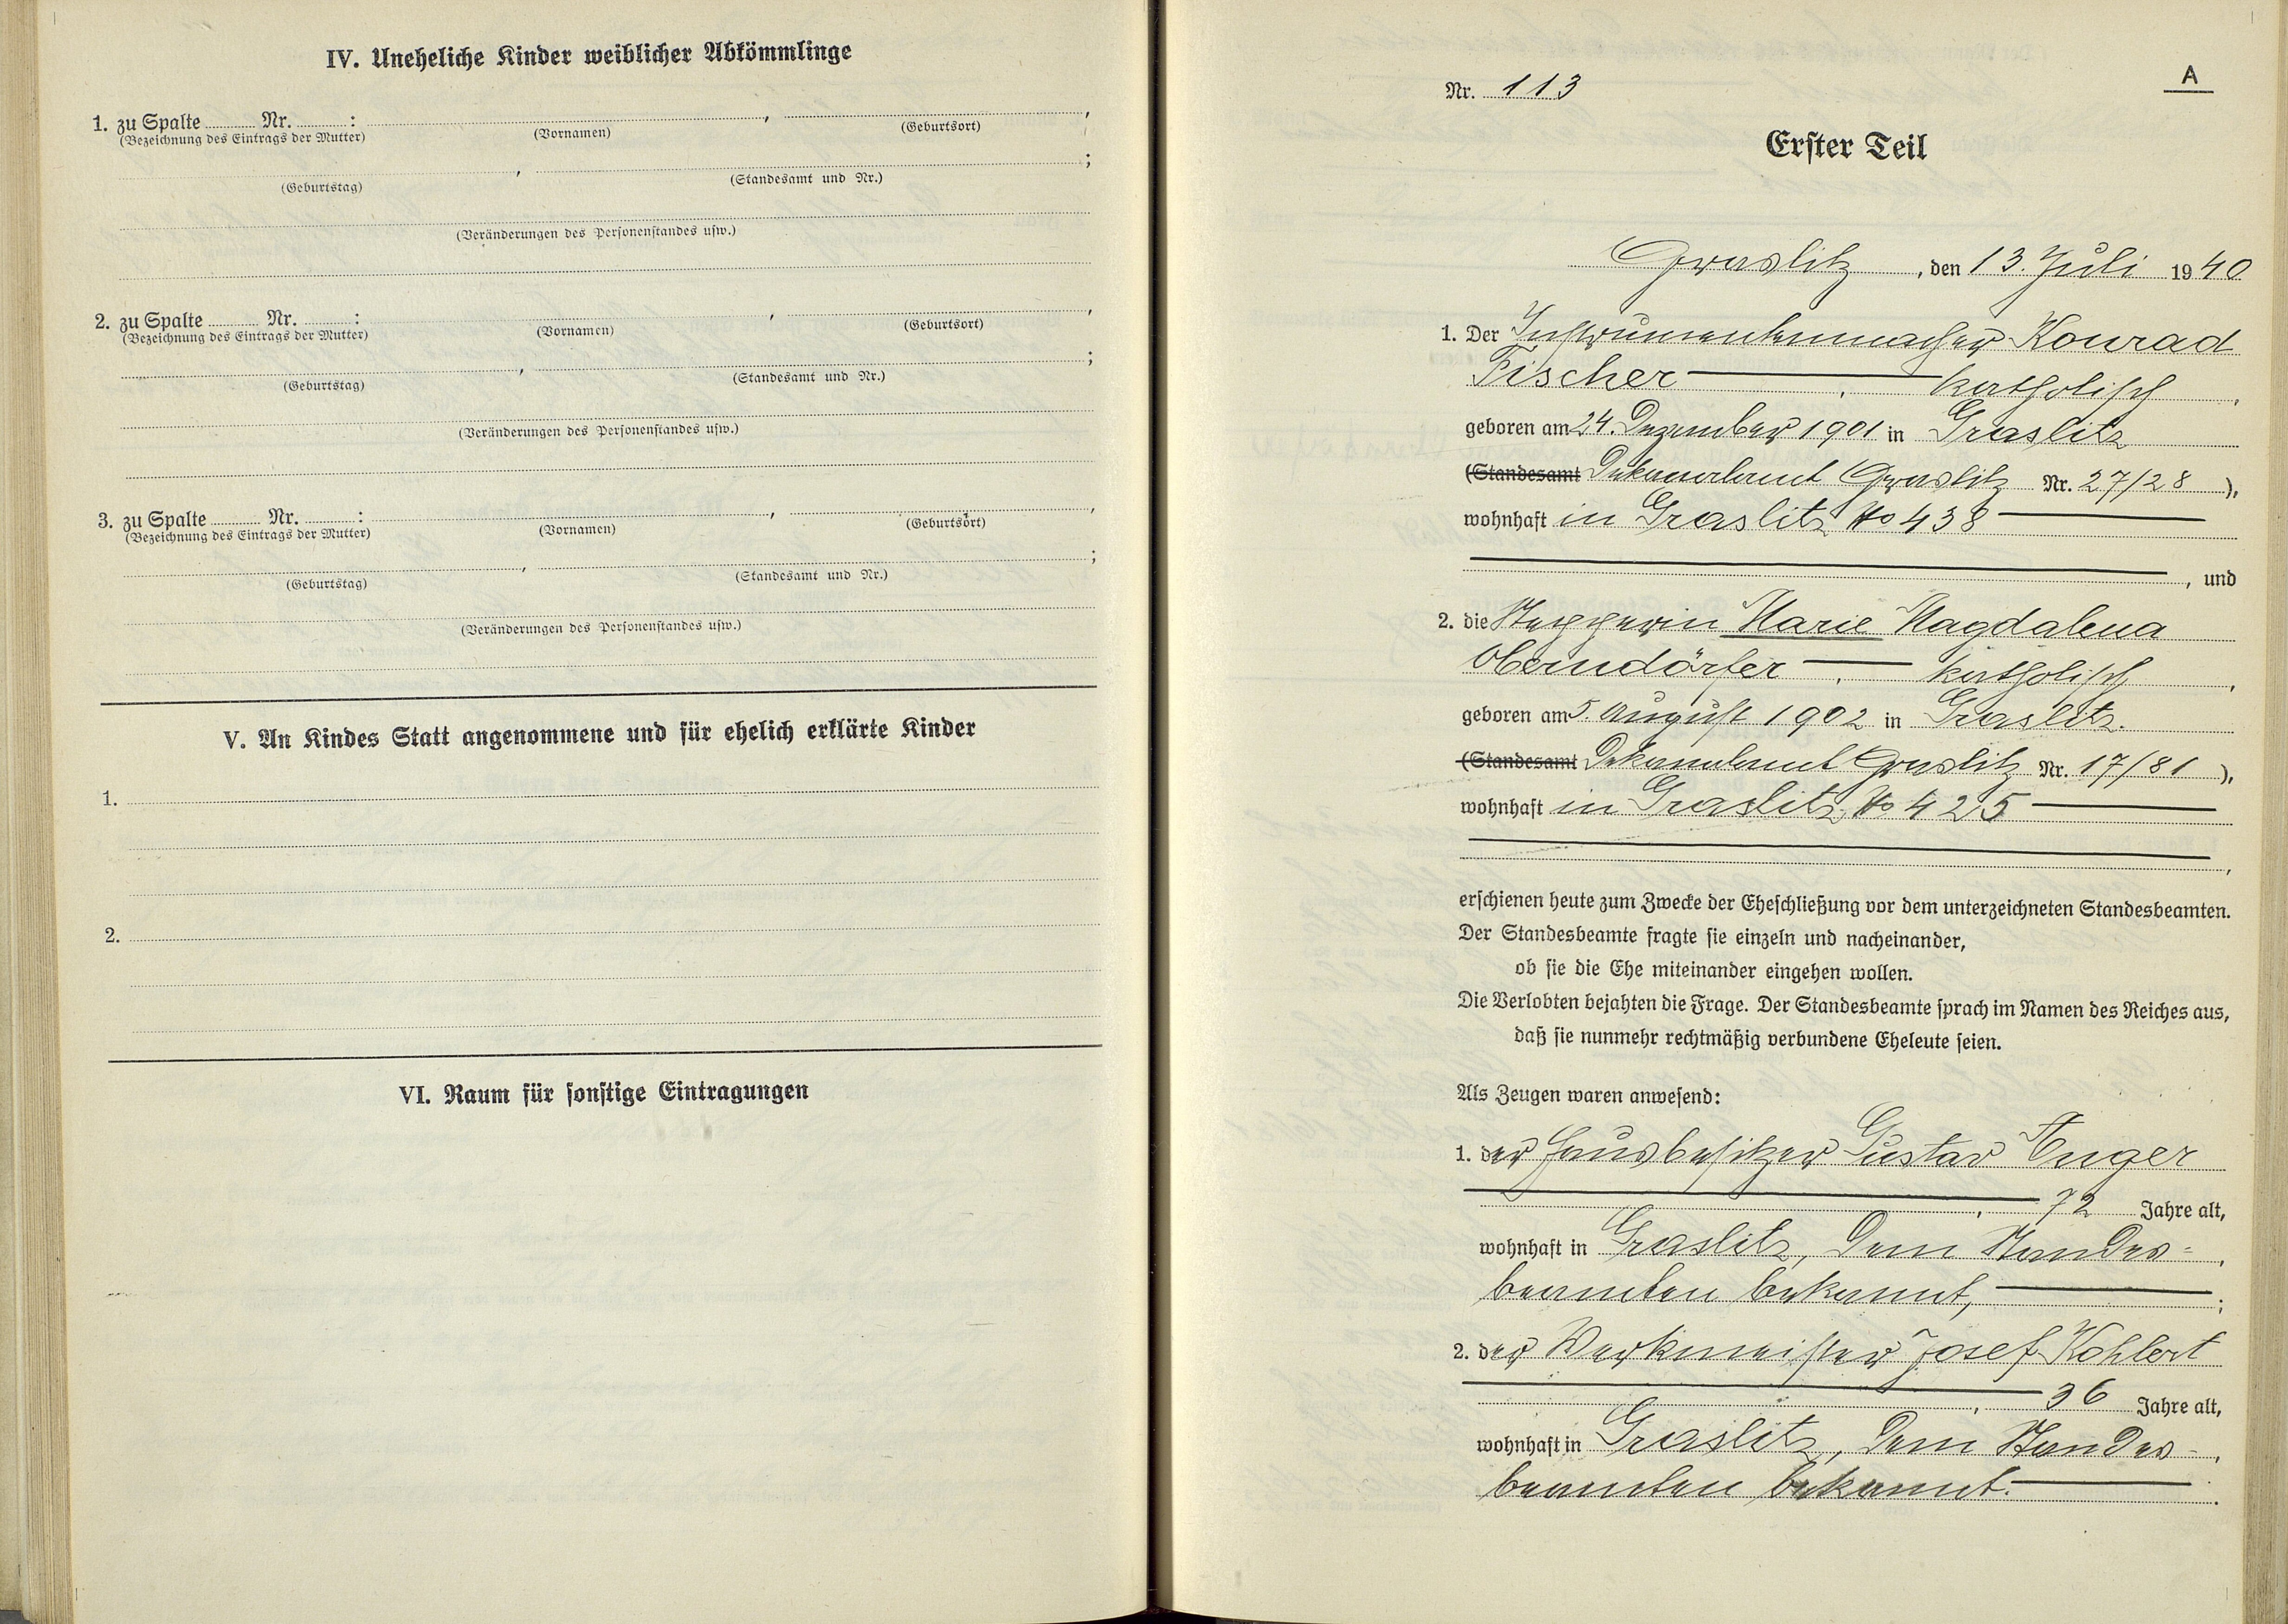 IV. Uneheliche Kinder weiblicher Abkömmlinge
1. zu Spalte Nr. : , ,
(Bezeichnung des Eintrags der Mutter) (Vornamen) (Geburtsort)
, ;
(Geburtstag) (Standesamt und Nr.)
(Veränderungen des Personenstandes usw.)
2. zu Spalte Nr. : , ,
(Bezeichnung des Eintrags der Mutter) (Vornamen) (Geburtsort)
, ;
(Geburtstag) (Standesamt und Nr.)
(Veränderungen des Personenstandes usw.)
3. zu Spalte Nr. : , ,
(Bezeichnung des Eintrags der Mutter) (Vornamen) (Geburtsort)
, ;
(Geburtstag) (Standesamt und Nr.)
(Veränderungen des Personenstandes usw.)
V. An Kindes Statt angenommene und für ehelich erklärte Kinder
1.
2.
VI. Raum für sonstige Eintragungen
A
Nr. 113
Erster Teil
Graslitz, den 13. Juli 1940
1. Der Instrumentenmacher Konrad
Fischer — , katholisch ,
geboren am 24. Dezember 1901 in Graslitz
(Standesamt Dekanalamt Graslitz Nr. 27/28 ),
wohnhaft in Graslitz No 438 —
, und
2. die Stepperin Marie Magdalena
Oberndörfer — , katholisch ,
geboren am 5. August 1902 in Graslitz.
(Standesamt Dekanalamt Graslitz Nr. 17/81 ),
wohnhaft in Graslitz No 425 —
,
erschienen heute zum Zwecke der Eheschließung vor dem unterzeichneten Standesbeamten.
Der Standesbeamte fragte sie einzeln und nacheinander,
ob sie die Ehe miteinander eingehen wollen.
Die Verlobten bejahten die Frage. Der Standesbeamte sprach im Namen des Reiches aus,
daß sie nunmehr rechtmäßig verbundene Eheleute seien.
Als Zeugen waren anwesend:
1. der Hausbesitzer Gustav Unger
— , 72 Jahre alt,
wohnhaft in Graslitz, dem Standes=
beamten bekannt, — ;
2. der Werkmeister Josef Kohlert
— , 36 Jahre alt,
wohnhaft in Graslitz, dem Standes-
beamten bekannt. — .